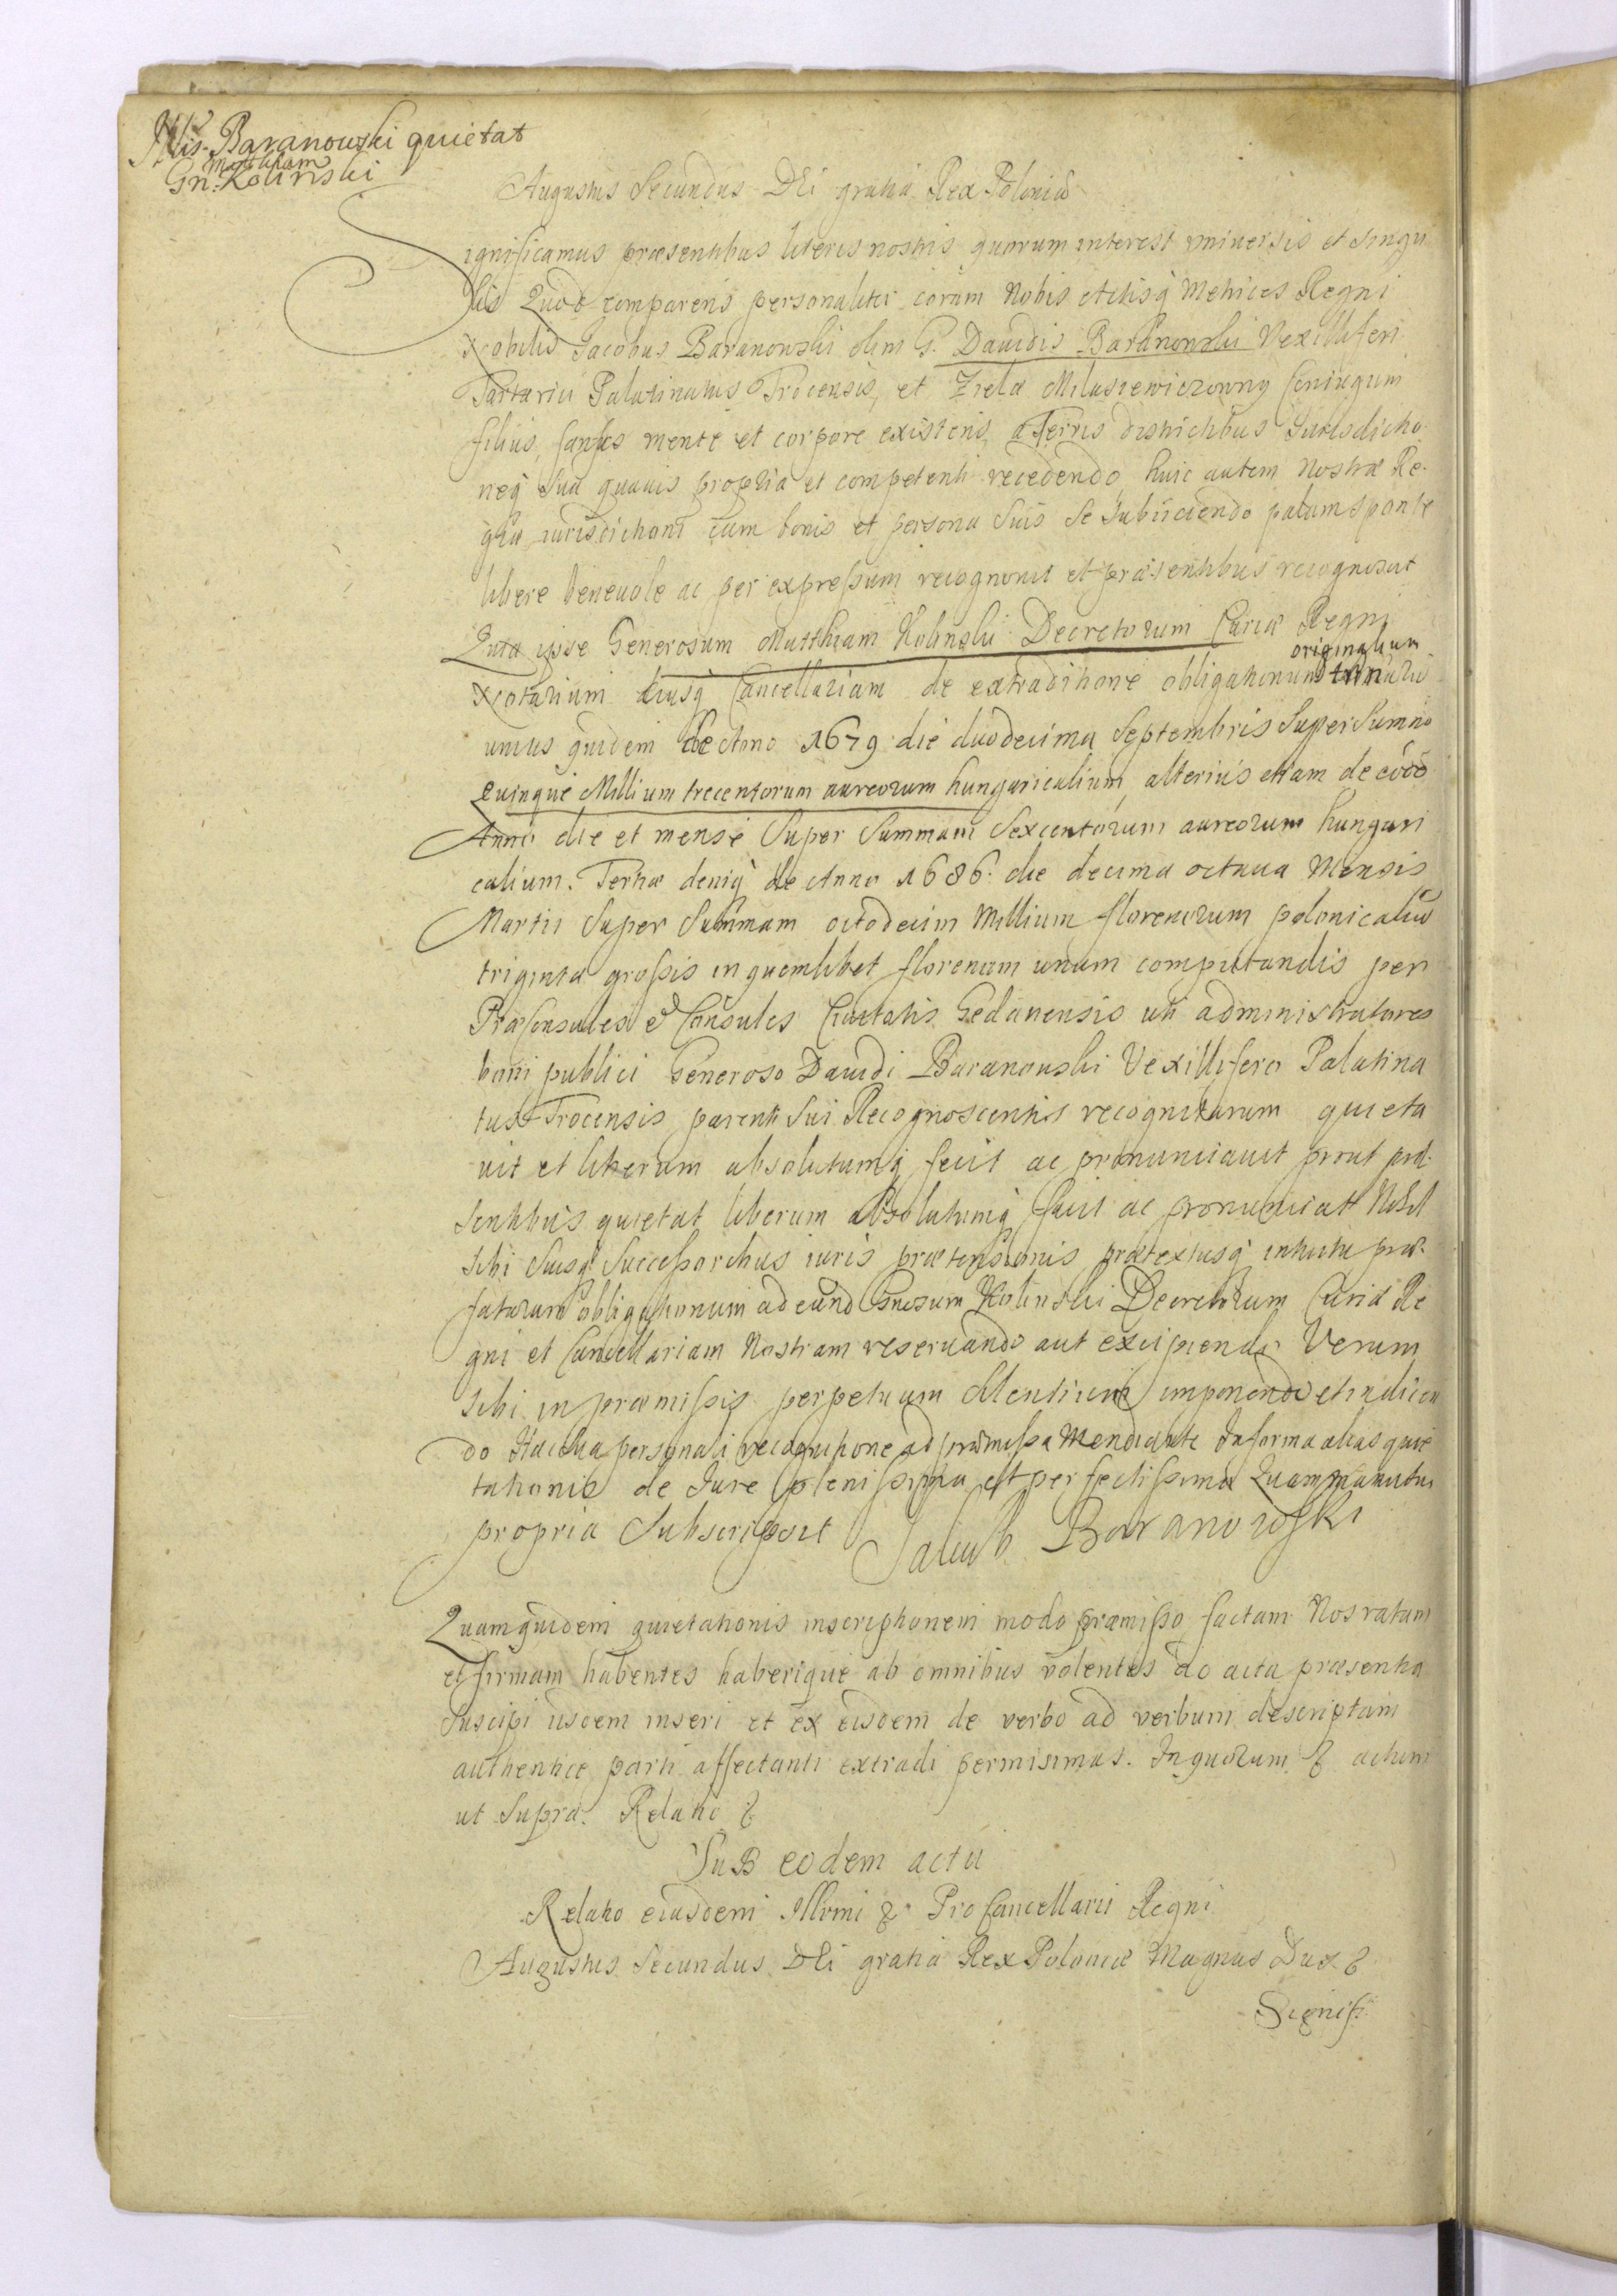 Nlis. Baranowski quietat
Mathiam
Gn: Kolinski
Augustus Secundus DEi gratia Rex Poloniæ
Significamus præsentibus literis nostris quorum interest universis et singu
lis Quod comparens personaliter coram Nobis Actisq Metrices Regni
Nobilis Jacobus Baranowski olim G. Dauidis Baranowski Vexilliferi
Tartarici Palatinatus Trocensis, et Ziela Milasiewiczowny Coniugum
filius, sanus mente et corpore existens, a Terris districtibus Jurisdictio
neq sua quauis propria et competenti recedendo huic autem Nostræ Re-
giæ iurisdictioni cum bonis et persona suis se subiiciendo palam sponte
libere beneuole ac per expressum recognouit et præsentibus recognoscit
Quia ipse Generosum Matthiam Kolinski Decretorum Curiæ Regni
originalium
Notarium eiusq Cancellariam de extraditione obligationum trinarū
unius quidem de Anno 1679 die duodecima Septembris super Summā
Quinque Millium trecentorum aureorum hungaricalium, alterius etiam de eodē
Anno die et mense super Summam Sexcentorum aureorum hungari
calium. Tertiæ deniq de Anno 1686 die decima octaua Mensis
Martii super Summam octodecim Millium florenorum polonicaliū
triginta grossis in quemlibet florenum unum computandis per
Præconsules et Consules Ciuitatis Gedanensis uti administratores
boni publici Generoso Dauidi Baranowski Vexillifero Palatina
tus Trocensis parenti sui Recognoscentis recognitarum quieta
uit et liberum absolutumq fecit ac pronunciauit prout præ-
sentibus quietat liberum absolutumq facit ac pronunciat Nihil
sibi suisq Successoribus iuris prætensionis prætextusq intuitu præ-
fatarum obligationum ad eund Gnosum Kolinski Decretorum Curiæ Re
gni et Cancellariam Nostram reseruando aut excipiendo Verum
sibi in præmissis perpetuum silentium imponendo et indicen
do Hac sua personali recognitione ad præmissa Mediante In forma alias quie
tationis de Jure plenissima et perfectissima Quam manu tus
propria Subscripsit Jakub Baranowski
Quamquidem quietationis inscriptionem modo præmisso factam Nos ratam
et firmam habentes haberique ab omnibus volentes ad acta præsentia
suscipi iisdem inseri et ex eisdem de verbo ad verbum descriptam
authentice parti affectanti extradi permisimus. In quorum & actum
ut supra. Relatio &
SuB eodem actu
Relatio eiusdem Illmi & ProCancellarii Regni
Augustus Secundus DEi gratia Rex Poloniæ Magnus Dux &
Signifi-